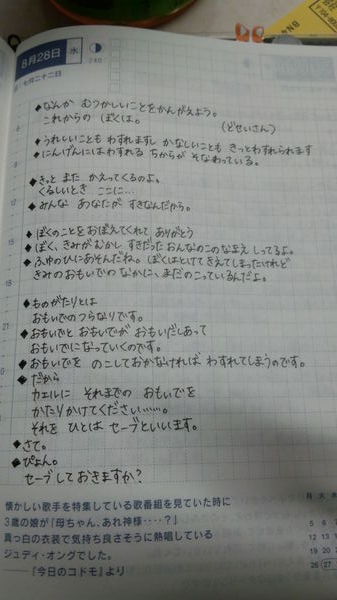 8月28日 水
七月二十二日
◆なんか むつかしいことをかんがえよう。
これからの ぼくは。
(どせいさん)
◆うれしいことも わすれますし かなしいことも きっとわすれられます
◆にんげんにはわすれる ちからが そなわっている。
◆きっと また かえってくるのよ。
くるしいとき ここに…
◆みんな あなたが すきなんだから。
◆ぼくのことを おぼえてくれて ありがとう
◆ぼく、きみがむかし すきだった おんなのこのなまえ しってるよ。
◆ふゆのひにあそんだね。ぼくはとけて きえてしまったけれど
きみのおもいでの なかに、まだのこっているんだよ。
◆ものがたりとは
おもいでのつらなりです。
◆おもいでと おもいでが おもいだしあって
おもいでになっていくのです。
◆おもいでを のこしておかなければ わすれてしまうのです。
◆だから
カエルに それまでの おもいでを
かたりかけてください……。
それを ひとは セーブといいます。
◆さて。
◆ぴょん。
セーブしておきますか?
懐かしい歌手を特集している歌番組を見ていた時に
3歳の娘が『母ちゃん、あれ神様‥‥?』
真っ白の衣装で気持ち良さそうに熱唱している
ジュディ・オングでした。
──『今日のコドモ』より
月 火
5 6
12 13
19 20
26 27
9
12
15
18
21